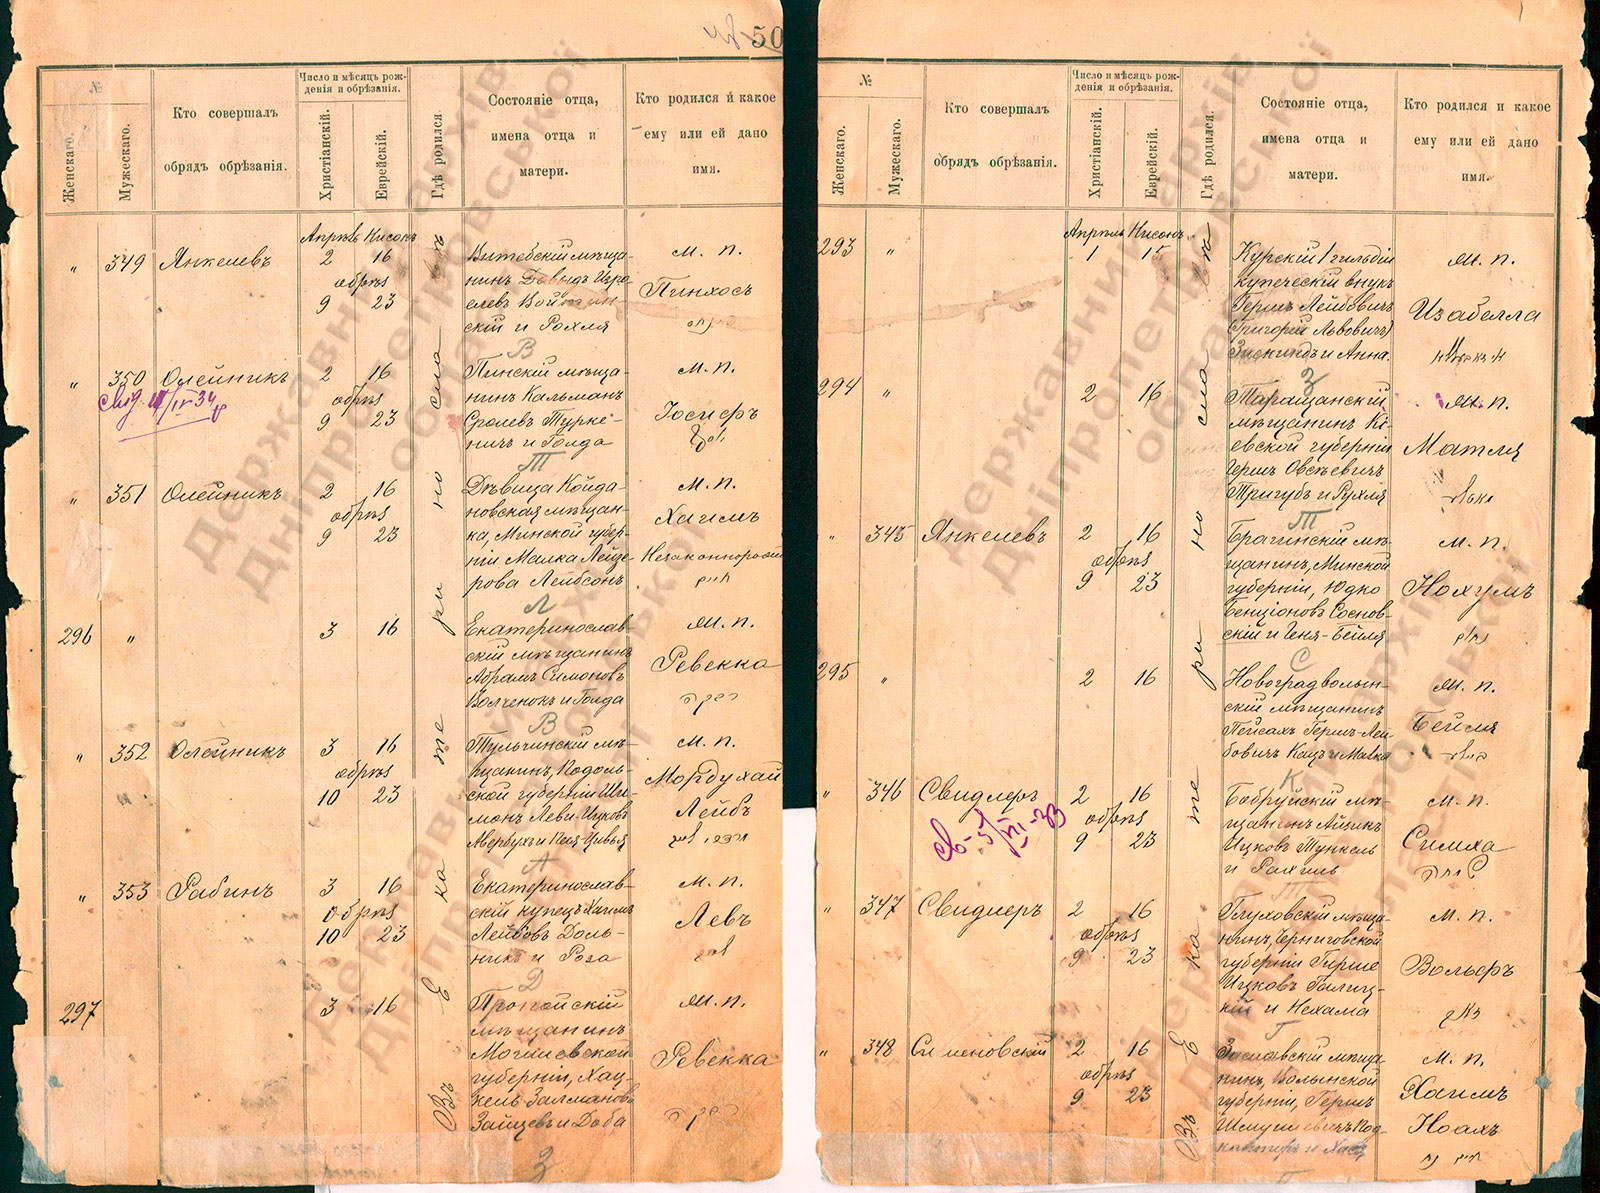 50
№
Женскаго.
Мужескаго.
Кто совершалъ
обрядъ обрѣзанія.
Число и мѣсяцъ рож-
денія и обрѣзанія.
Христіанскій.
Еврейскій.
Гдѣ родился
Состояніе отца,
имена отца и
матери.
Кто родился и какое
ему или ей дано
имя.
Въ Екатеринославѣ
Апрѣль Нисонъ
" 349 Янкелевъ 2 16
обрѣз
9 23
Витебскій мѣща-
нинъ Давидъ Изра-
елевъ
скій и Рохля
м. п.
Пинхосъ
В
" 350 Олейникъ 2 16
обрѣз
9 23
Пинскій мѣща-
нинъ Кальманъ
Сролевъ Турке-
ничъ и Голда
м. п.
Іосифъ
יוסף
Т
" 351 Олейникъ 2 16
обрѣз
9 23
Дѣвица Койда-
новская мѣщан-
ка, Минской губер-
ніи Малка Лейзе-
рова Лейбсонъ
м. п.
Хаимъ
Незаконнорожд
חיים
Л
296 " 3 16
Екатеринослав-
скій мѣщанинъ
Абрамъ Симоновъ
Волченокъ и Голда
м. п.
Ревекка
רבקה
В
" 352 Олейникъ 3 16
обрѣз
10 23
Тульчинскій мѣ-
щанинъ, Подоль-
ской губерніи Ши-
монъ Леви-Ицковъ
Авербухъ и Песя-Цивья
м. п.
Мордухай
Лейбъ
מרדכי לייב
А
" 353 Рабинъ 3 16
обрѣз
10 23
Екатеринослав-
скій купецъ Хаимъ
Лейбовъ Доль-
никъ и Роза
м. п.
Левъ
לייב
Д
297 3 16
Пропойскій
мѣщанинъ
Могилевской
губерніи, Хац-
кель Залмановъ
Зайцевъ и Доба
м. п.
Ревекка
רבקה
З
№
Женскаго.
Мужескаго.
Кто совершалъ
обрядъ обрѣзанія.
Число и мѣсяцъ рож-
денія и обрѣзанія.
Христіанскій.
Еврейскій.
Гдѣ родился.
Состояніе отца,
имена отца и
матери.
Кто родился и какое
ему или ей дано
имя.
Въ Екатеринославѣ
Апрѣль Нисонъ
293 " 1 15
Курскій 1 гильдіи
купеческій внукъ
Гершъ Лейбовичъ
(Григорій Львовичъ)
Зискиндъ и Анна.
м. п.
Изабелла
З
294 " 2 16
Таращанскій
мѣщанинъ Кі-
евской губерніи
Гершъ Овсѣевичъ
Тригубъ и Рухля
м. п.
Матля
Т
" 345 Янкелевъ 2 16
обрѣз
9 23
Брагинскій мѣ-
щанинъ, Минской
губерніи, Юдко
Бенціоновъ Соснов-
скій и Геня-Бейля
м. п.
Нохумъ
נחום
С
295 " 2 16
Новоградволын-
скій мѣщанинъ
Пейсахъ Гершъ-Лей-
бовичъ Кацъ и Малка
м. п.
Бейля
ביילא
К
" 346 Свидлеръ 2 16
обрѣз
9 23
Бобруйскій мѣ-
щанинъ Айзикъ
Ицковъ Тункель
и Рахиль
м. п.
Симха
שמחה
Т
" 347 Свидлеръ 2 16
обрѣз
9 23
Глуховскій мѣща-
нинъ, Черниговской
губерніи Гирше
Ицковъ Галиц-
кій и Нехама
м. п.
Вольфъ
Г
" 348 Симоновскій 2 16
обрѣз
9 23
Заславскій мѣща-
нинъ, Волынской
губерніи, Гершъ
м. п.
Хаимъ
Ноахъ
חיים נח
Державний архів
Дніпропетровської
області